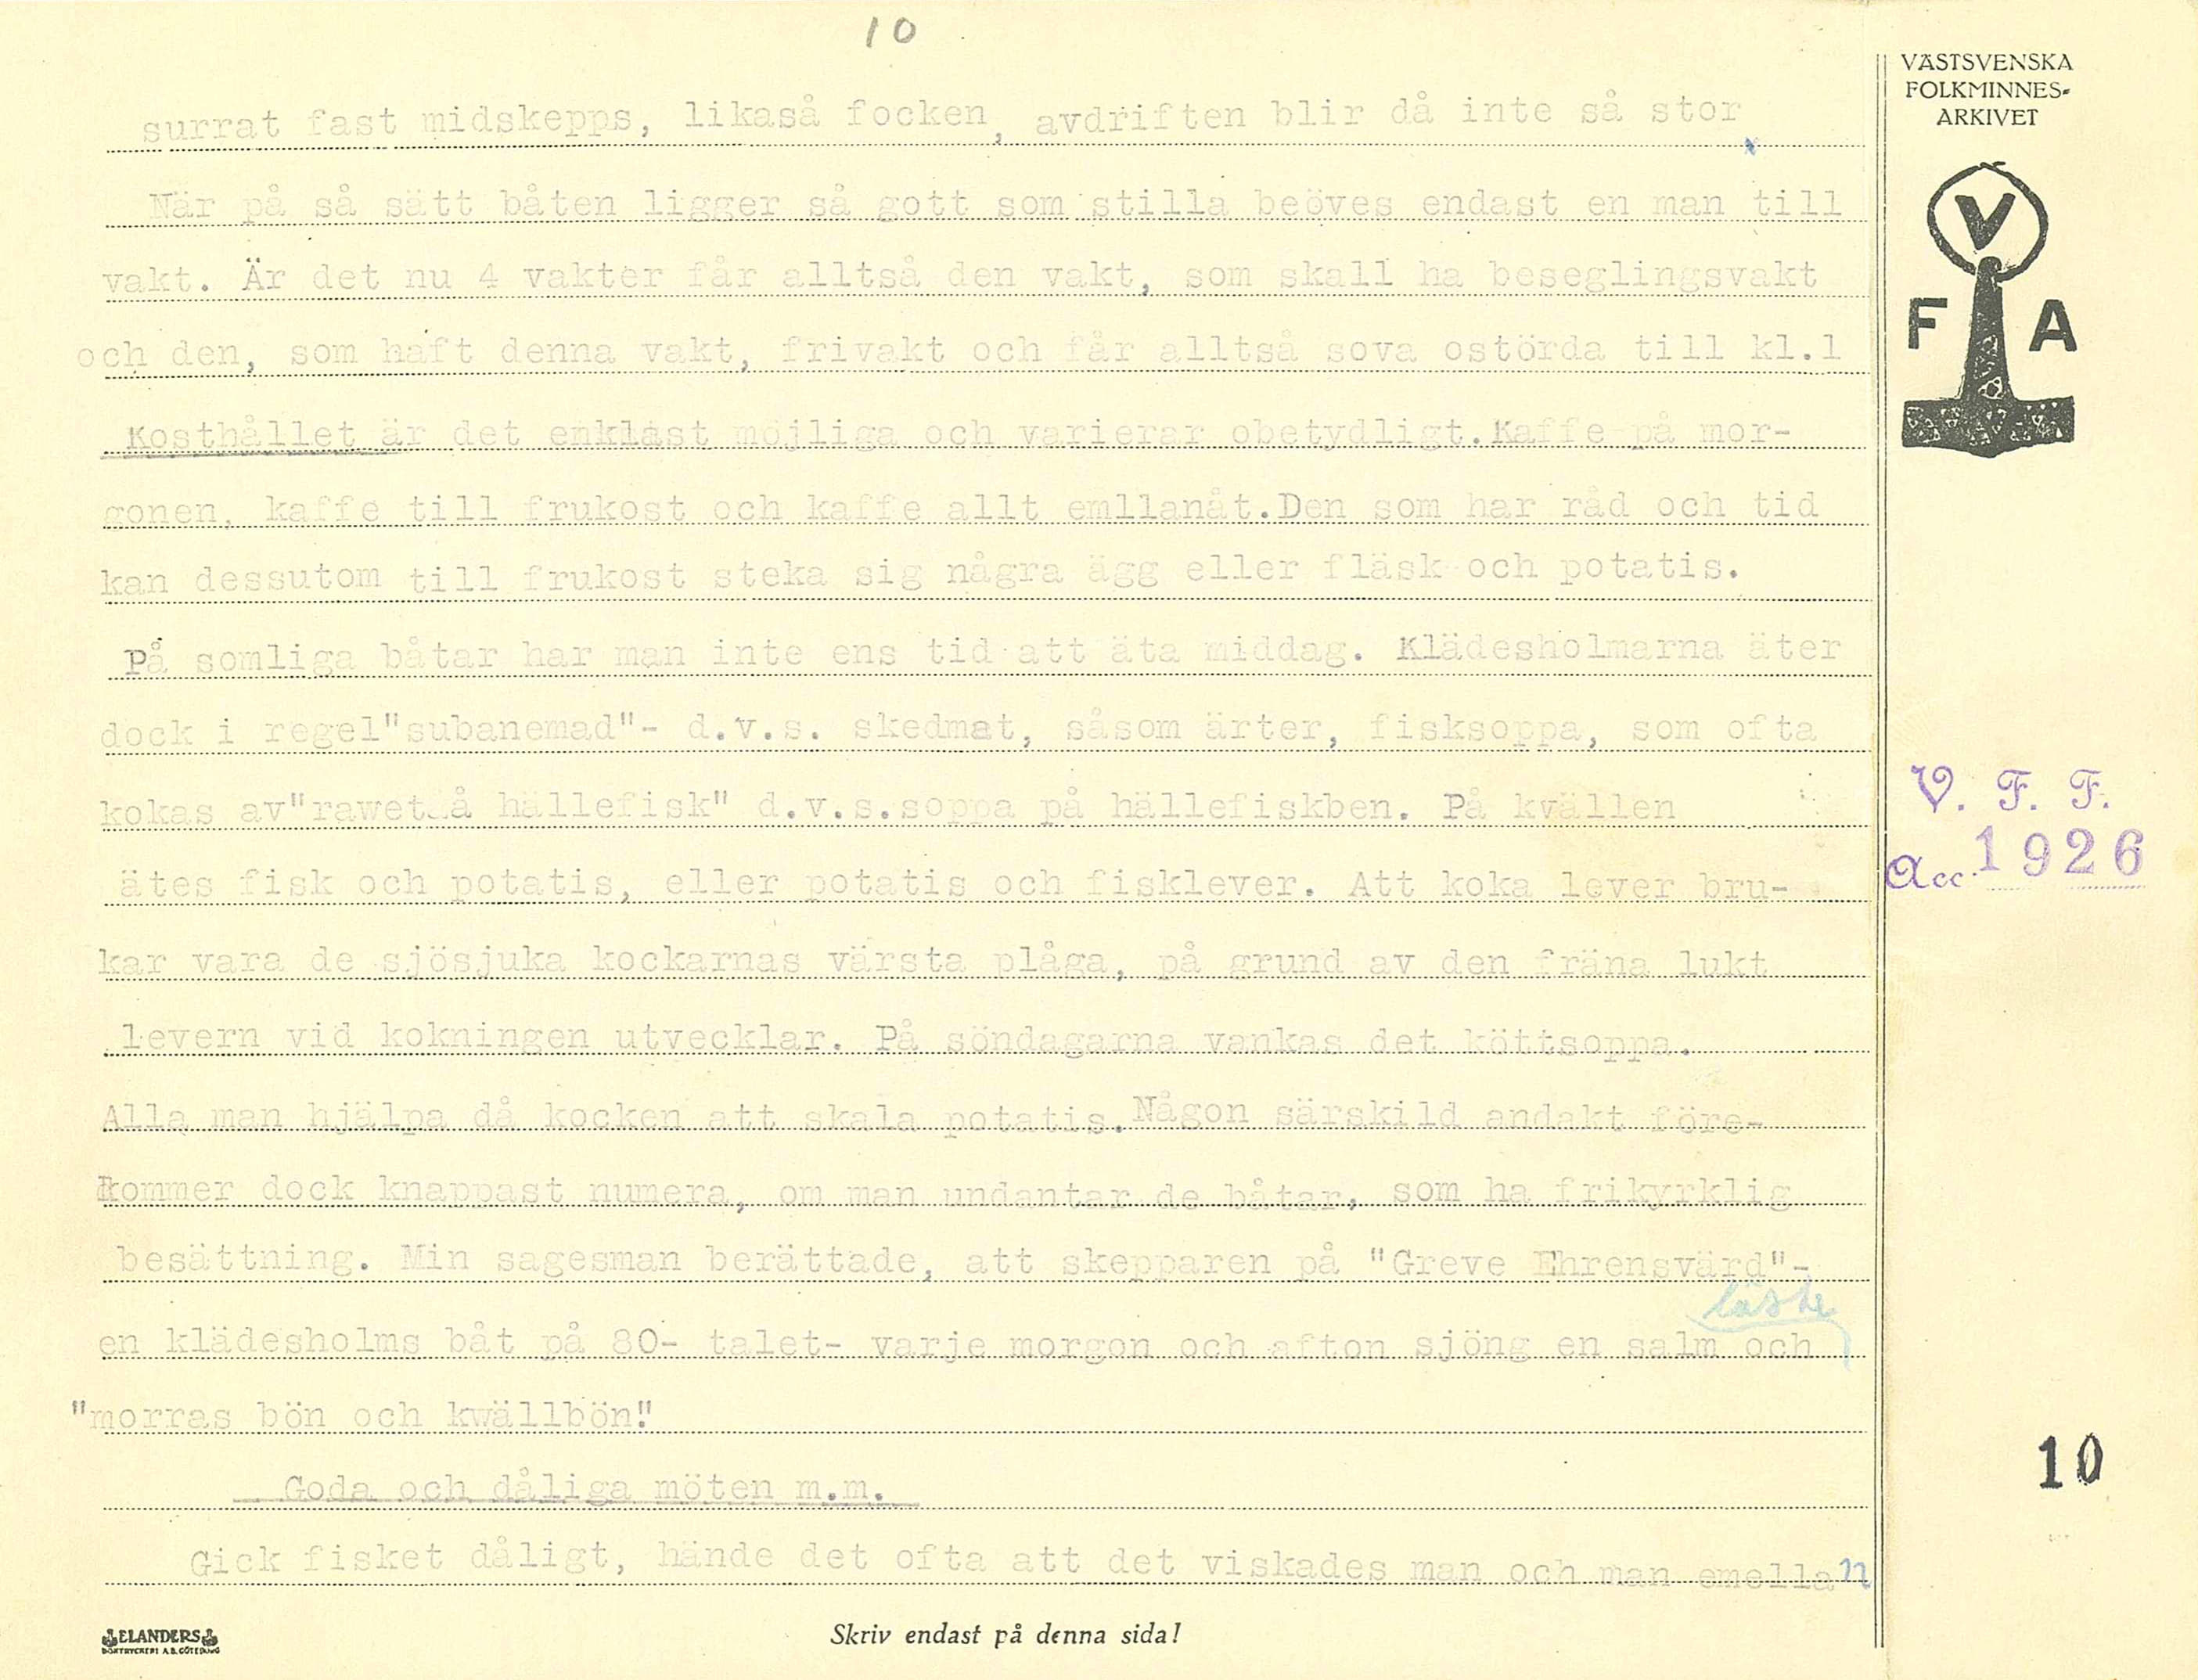 10
surrat fast midskepps, likaså focken, avdriften blir då inte så stor.
När på så sätt båten ligger så gott som stilla beöves endast en man till
vakt. Är det nu 4 vakter får alltså den vakt, som skall ha beseglingsvakt
och den, som haft denna vakt, frivakt och får alltså sova ostörda till kl.1
Kosthållet är det enklast möjliga och varierar obetydligt. Kaffe på mor-
gonen, kaffe till frukost och kaffe allt emllanåt. Den som har råd och tid
kan dessutom till frukost steka sig några ägg eller fläsk och potatis.
På somliga båtar har man inte ens tid att äta middag. Klädesholmarna äter
dock i regel "subanemad"- d.v.s. skedmat, såsom ärter, fisksoppa, som ofta
kokas av "rawet å hällefisk" d.v.s. soppa på hällefiskben. På kvällen
ätes fisk och potatis, eller potatis och fisklever. Att koka lever bru-
kar vara de sjösjuka kockarnas värsta plåga, på grund av den fräna lukt
levern vid kokningen utvecklar. På söndagarna vankas det köttsoppa.
Alla man hjälpa då kocken att skala potatis. Någon särskild andakt före-
kommer dock knappast numera, om man undantar de båtar, som ha frikyrklig
besättning. Min sagesman berättade, att skepparen på "Greve Ehrensvärd"-
läste
en klädesholms båt på 80- talet- varje morgon och afton sjöng en salm och
"morras bön och kwällbön"!
Goda och dåliga möten m.m.
Gick fisket dåligt, hände det ofta att det viskades man och man emellan
ELANDERS
BOKTRYCKERI A.B. GÖTEBORG
Skriv endast på denna sida!
VÄSTSVENSKA
FOLKMINNES-
ARKIVET
V
F A
V. F. F.
Acc. 1926
10